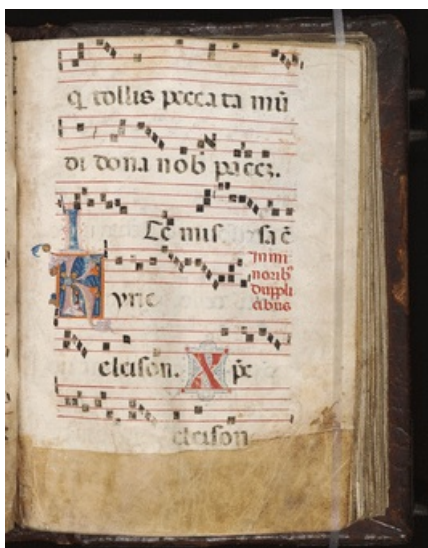 q tollis pecca ta mū
di dona nob pacez.
Ite mis sa ē
In mi
norib
duppli
cibus
Kyrie
eleison. Xpe
eleison